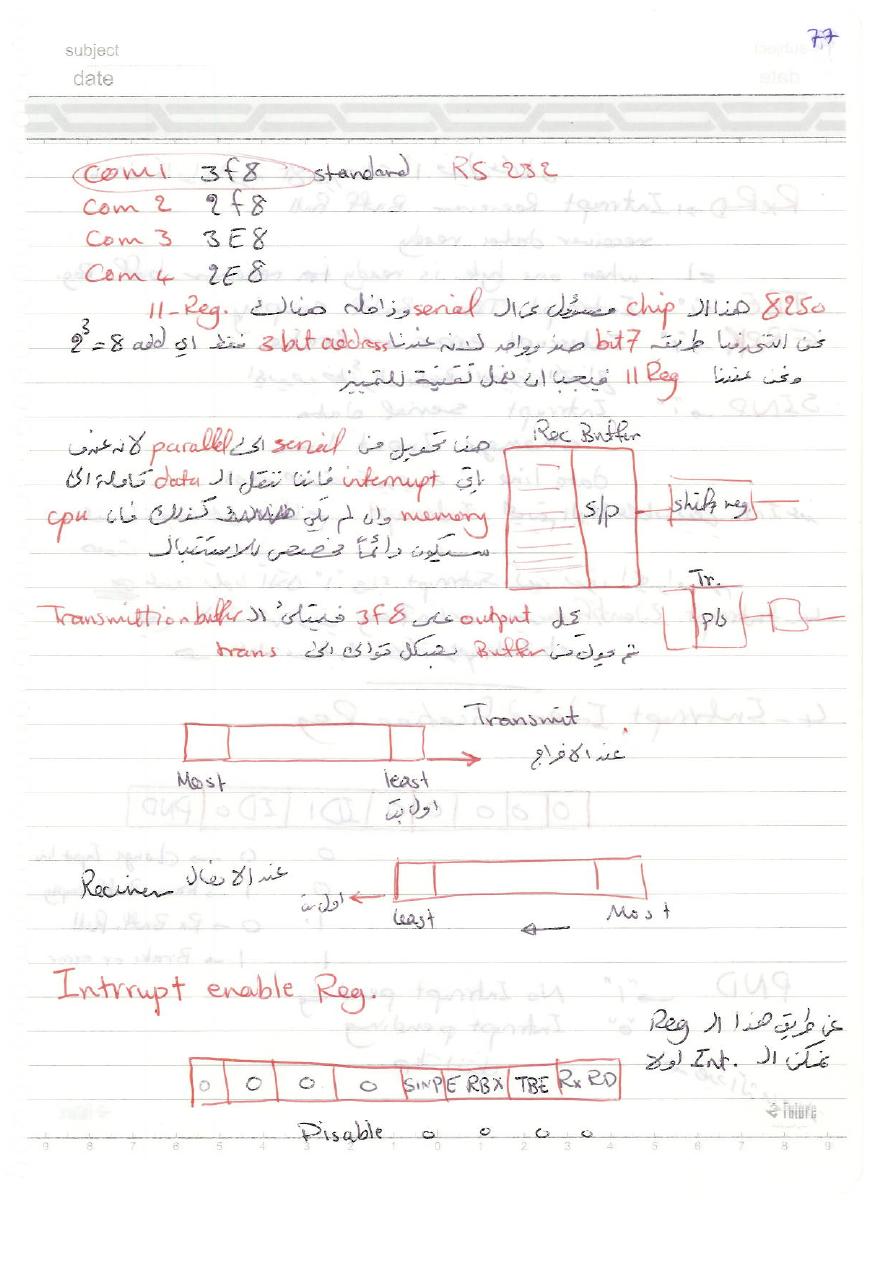 77
subject
date
Com 1 3f8 standard RS 232
Com 2 2f8
Com 3 3E8
Com 4 2E8
8250 هذا الـ chip مسؤول عن الـ serial وداخله هنالك 11-Reg.
نحن استخدمنا طريقه bit 7 صفر وواحد لانه عندنا 3 bit address فقط اي 2³=8 add
ونحن عندنا 11 Reg فيجب ان نعمل تقنية للتمييز
Rec Buffer
هنا تحويل من serial الى parallel لانه عندما
ياتي interrupt فاننا ننقل الـ data كاملة الى
memory وان لم يكن كذلك فان cpu
سيكون دائماً مخصص للاستقبال
S/P
shift reg
Tr.
P/s
output على 3f8 فيمتلئ الـ Transmittion buffer
ثم من Buffer بشكل متوالي الى trans
Transmit
عند الاخراج
Most least
اول بت
Reciner عند الادخال
اول بت
least Most
Intrrupt enable Reg.
عن طريق هذا الـ Reg
نمكن الـ Int. اولا
0 0 0 0 SINP E RBX TBE Rx RD
Disable 0 0 0 0
Future
9 8 7 6 5 4 3 2 1 0 1 2 3 4 5 6 7 8 9